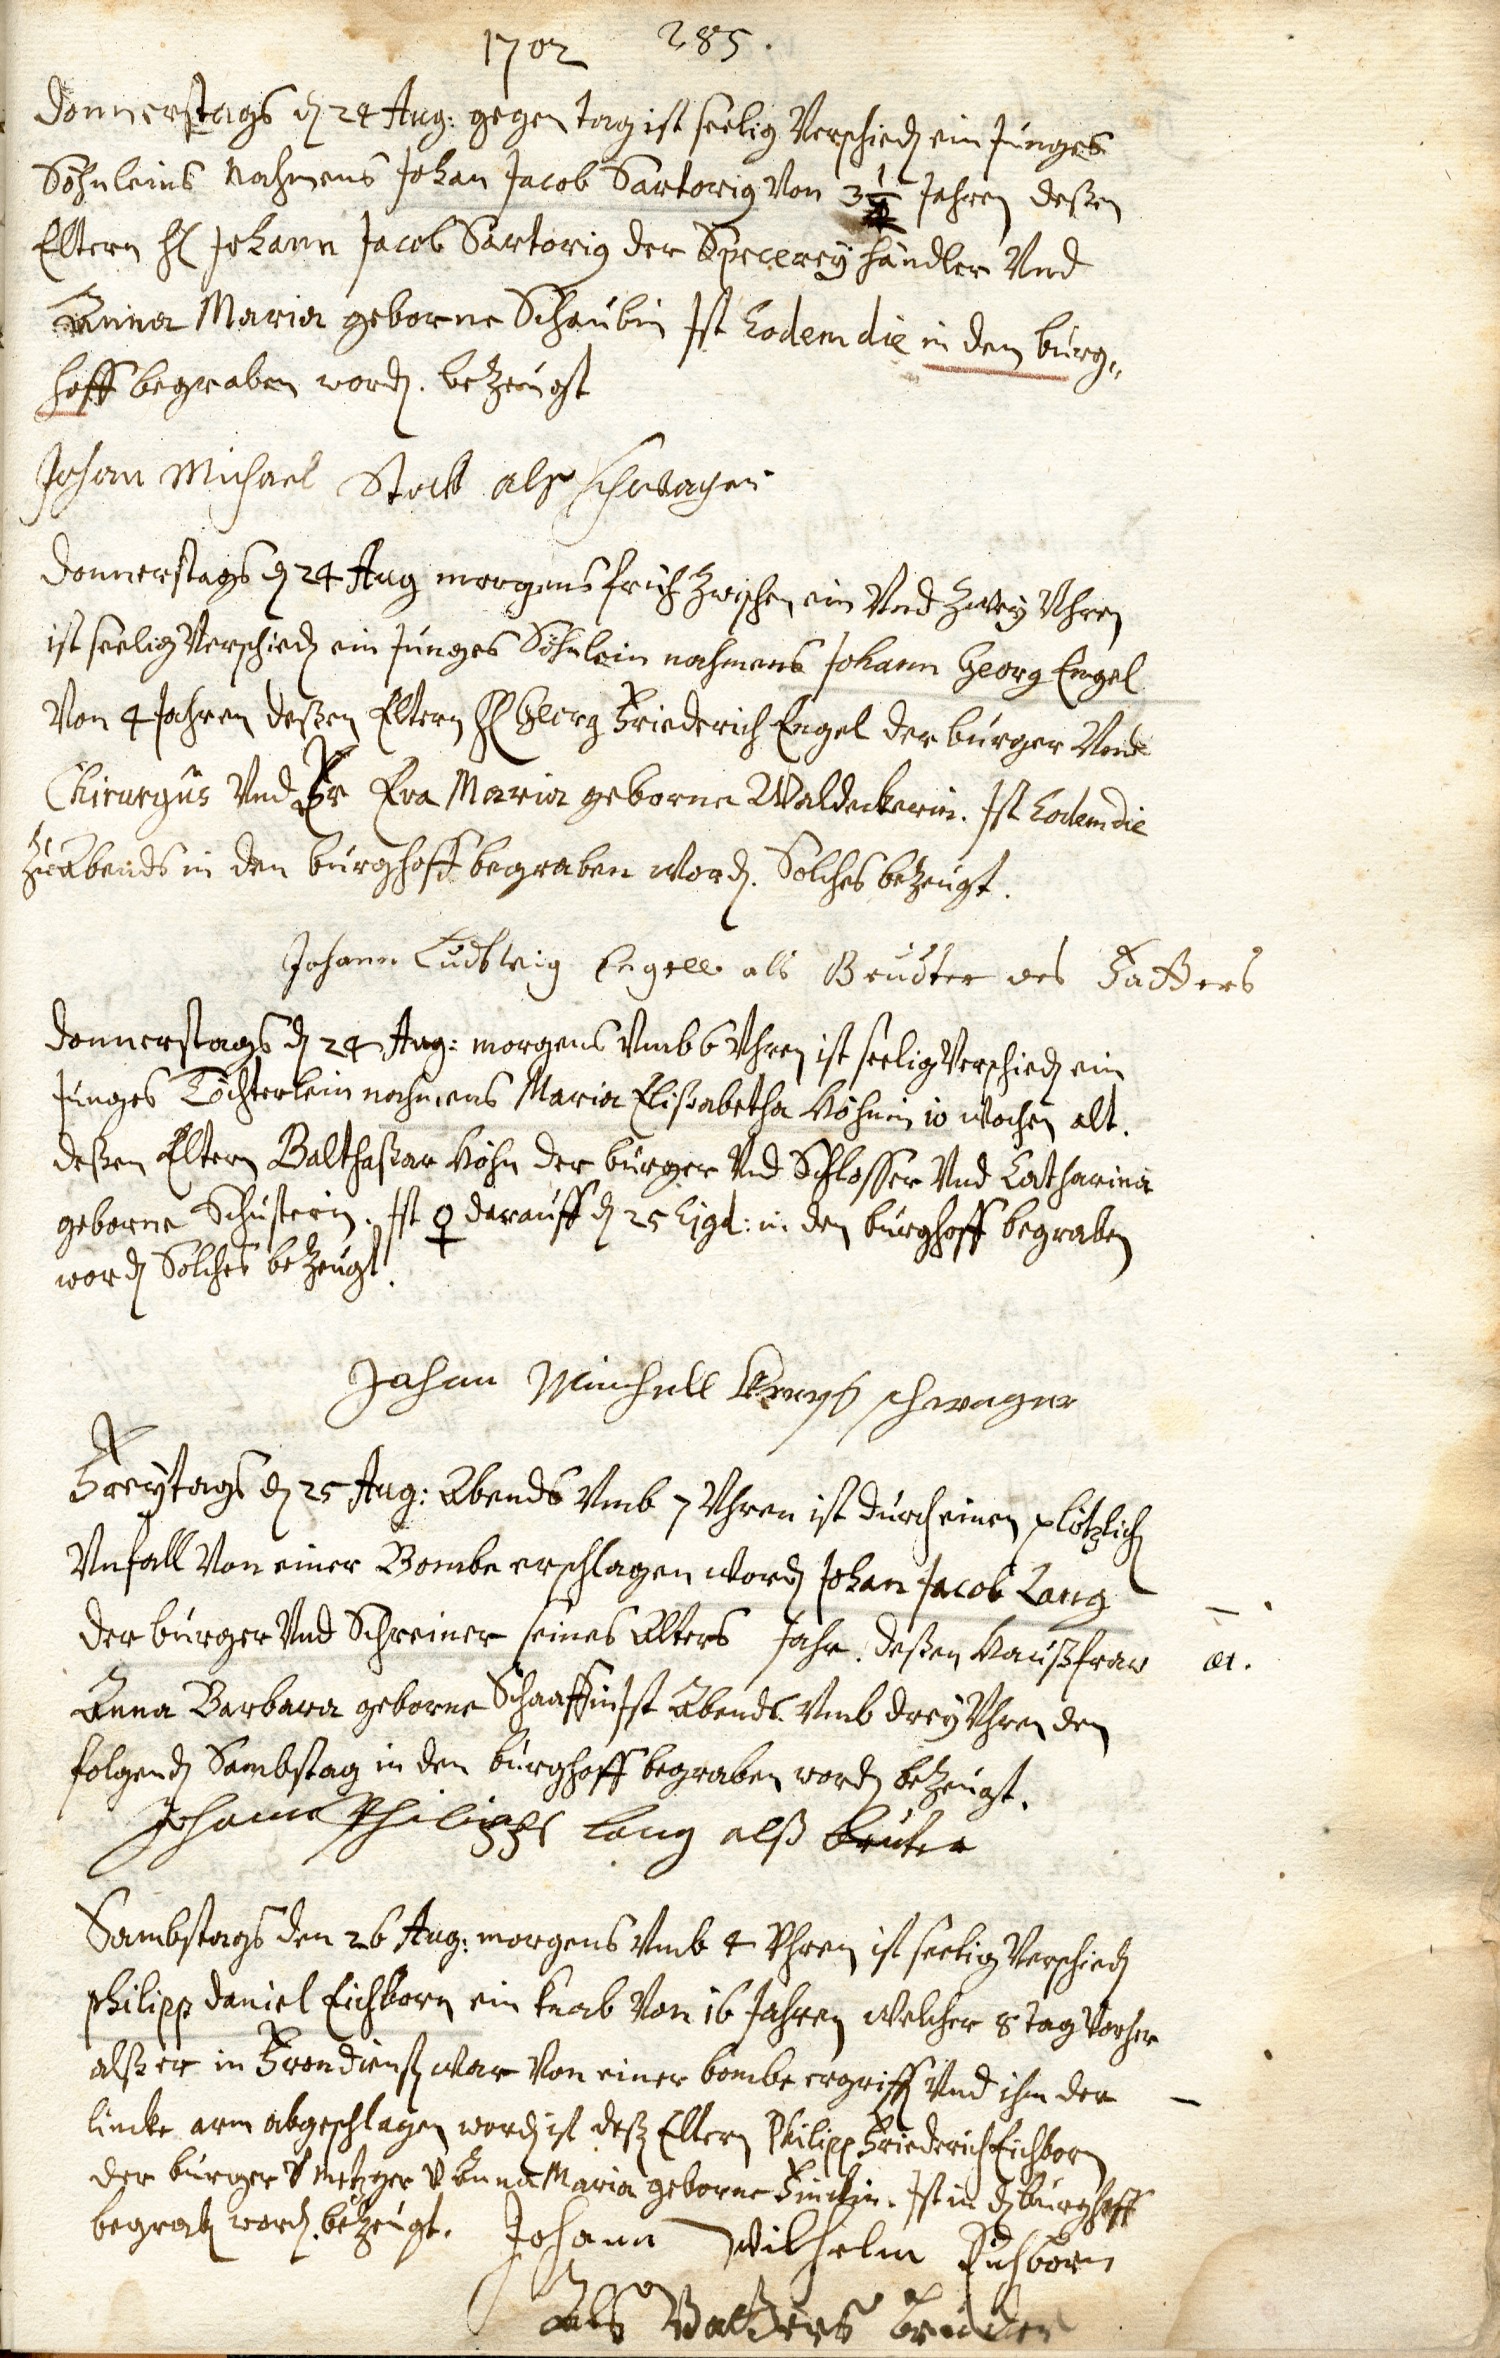 1702 285.
Donnerstags dz 24 Aug: gegen tag ist seelig Verschiedz ein Junges
Söhnleins Nahmens Johan Jacob Sartorig Von 3½ Jahren deßen
Eltern H Johann Jacob Sartorig der Specerey händler Vnd
Anna Maria geborne Schaubin Ist Eodem die in den burg„
hoff begraben wordz. beZeugt
Johan Michael Stoll alß schwager
Donnerstags dz 24 Aug morgens früh Zwischen ein Vnd Zwey Vhren
ist seelig Verschiedz ein Junges Söhnlein nahmens Johann Georg Engel
Von 4 Jahren deßen Eltern H Georg Friederich Engel der burger Vnd
Chirurgus Vnd Fr Eva Maria geborne Waldeckerin. Ist Eodem die
Zu Abends in den burghoff begraben wordz. Solches beZeugt.
Johann Ludwig Engell als Brudter des Fatters
Donnerstags dz 24 Aug: morgens Vmb 6 Vhren ist seelig Verschiedz ein
Junges Töchterlein nahmens Maria Elißabetha Höhnin 10 Wochen alt.
deßen Eltern Balthaßar Höhn der burger Vnd Schlosser Vnd Catharina
geborne Schusterin. Ist ♀ darauff dz 25 Ejgd: in den burghoff begraben
wordz Solches beZeugt.
Johan Minchell schwager
Freytags dz 25 Aug: Abends Vmb 7 Vhren ist durch einen plötzlichz
Vnfall Von einer Bombe erschlagen wordz Johan Jacob Lang
der burger Vnd Schreiner seines Alters Jahr. deßen Haußfraw
Anna Barbara geborne Schaaffin Ist Abends Vmb drey Vhren den
folgendz Sambstag in den burghoff begraben wordz beZeugt.
Johann Philipps Lang alß bruter
Sambstags den 26 Aug: morgens Vmb 4 Vhren ist seelig Verschiedz
Philipp Daniel Eichborn ein knab Von 16 Jahren welcher 8 tag Vorher
alß er in Frondienst war Von einer bombe ergriffz Vnd ihm der
lincke arm abgeschlagen wordz ist deßz Eltern Philipp Friederich Eichborn
der burger V Metzger V Anna Maria geborne Finckin. Ist in dz burghoff
begrabz wordz. beZeugt. Johann Wilhelm Eichborn
Als Vatters bruder